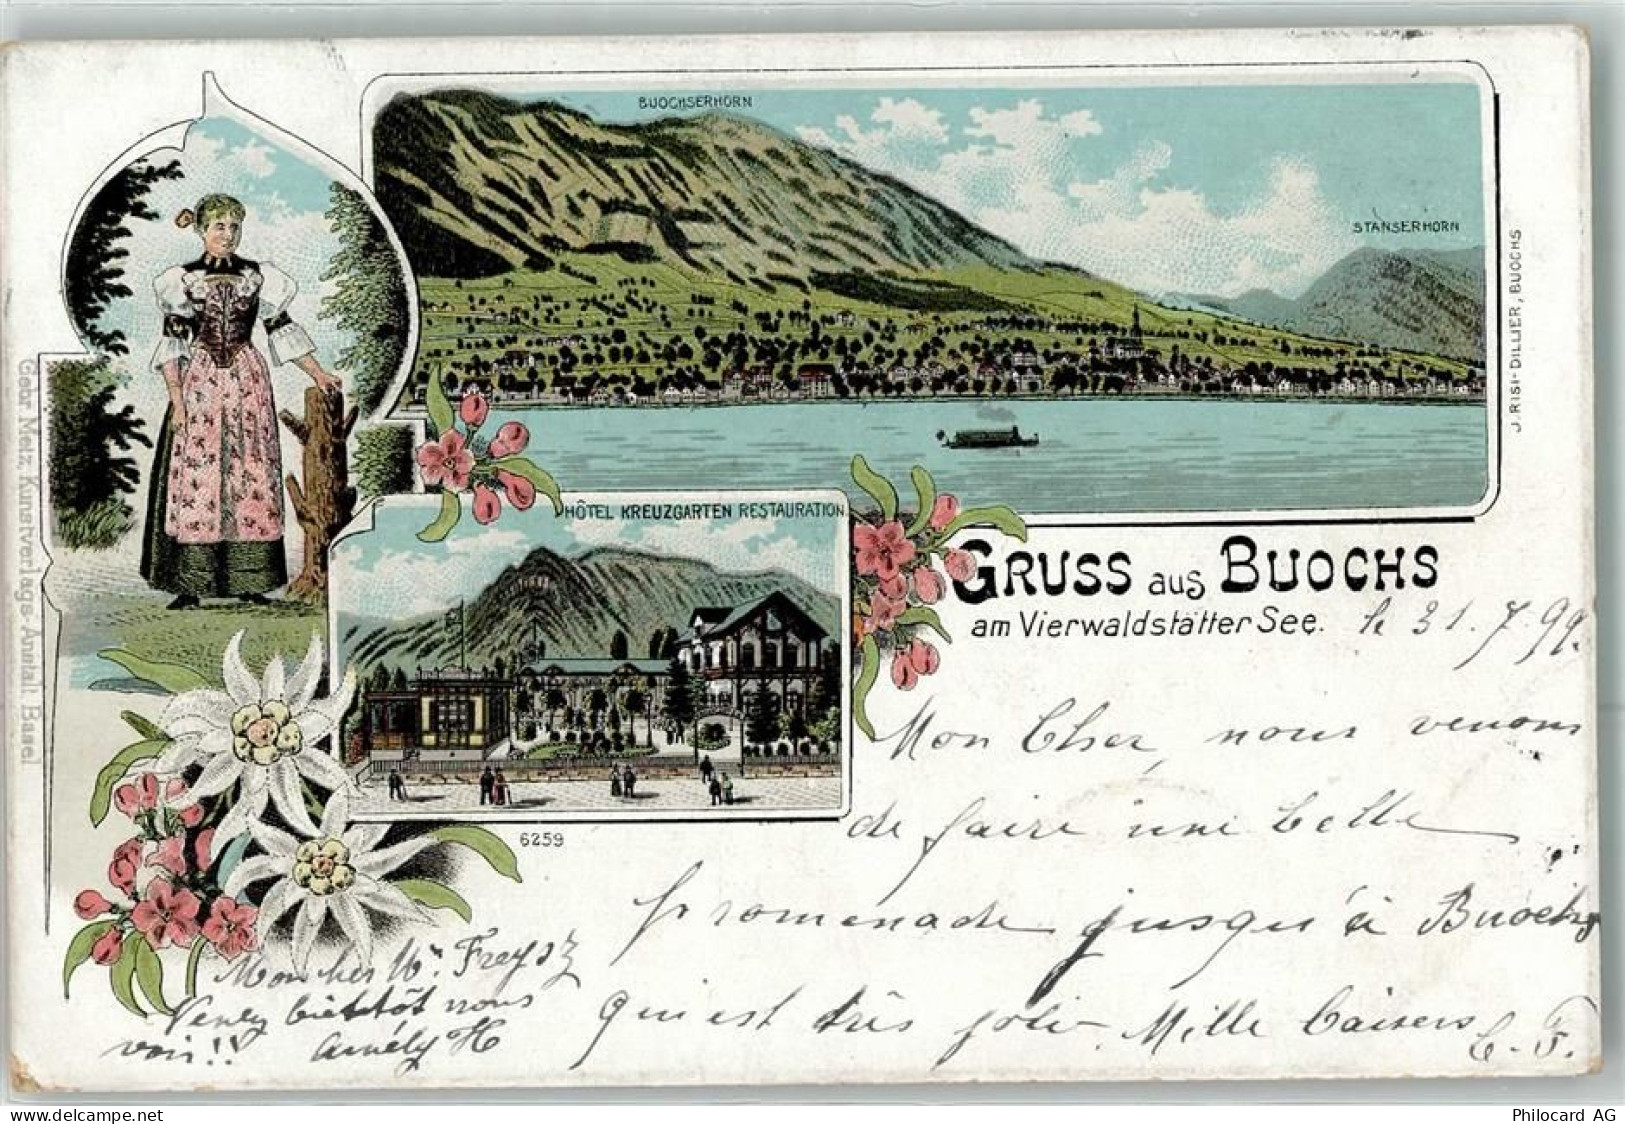 BUOCHSERHORN
STANSERHORN
J. RISI-DILLIER, BUOCHS
Gebr Metz, Kunstverlags-Anstalt Basel
HÔTEL KREUZGARTEN RESTAURATION
GRUSS aus BUOCHS
am Vierwaldstätter See.
le 31. 7. 99.
Mon Cher, nous venons
de faire une belle
promenade jusqu'à Buochs
qui est très jolie. Mille baisers
C. F.
6259
Mon cher Mr. Freysz
Venez bientôt nous
voir!! Amély H
delcampe.net
Philocard AG